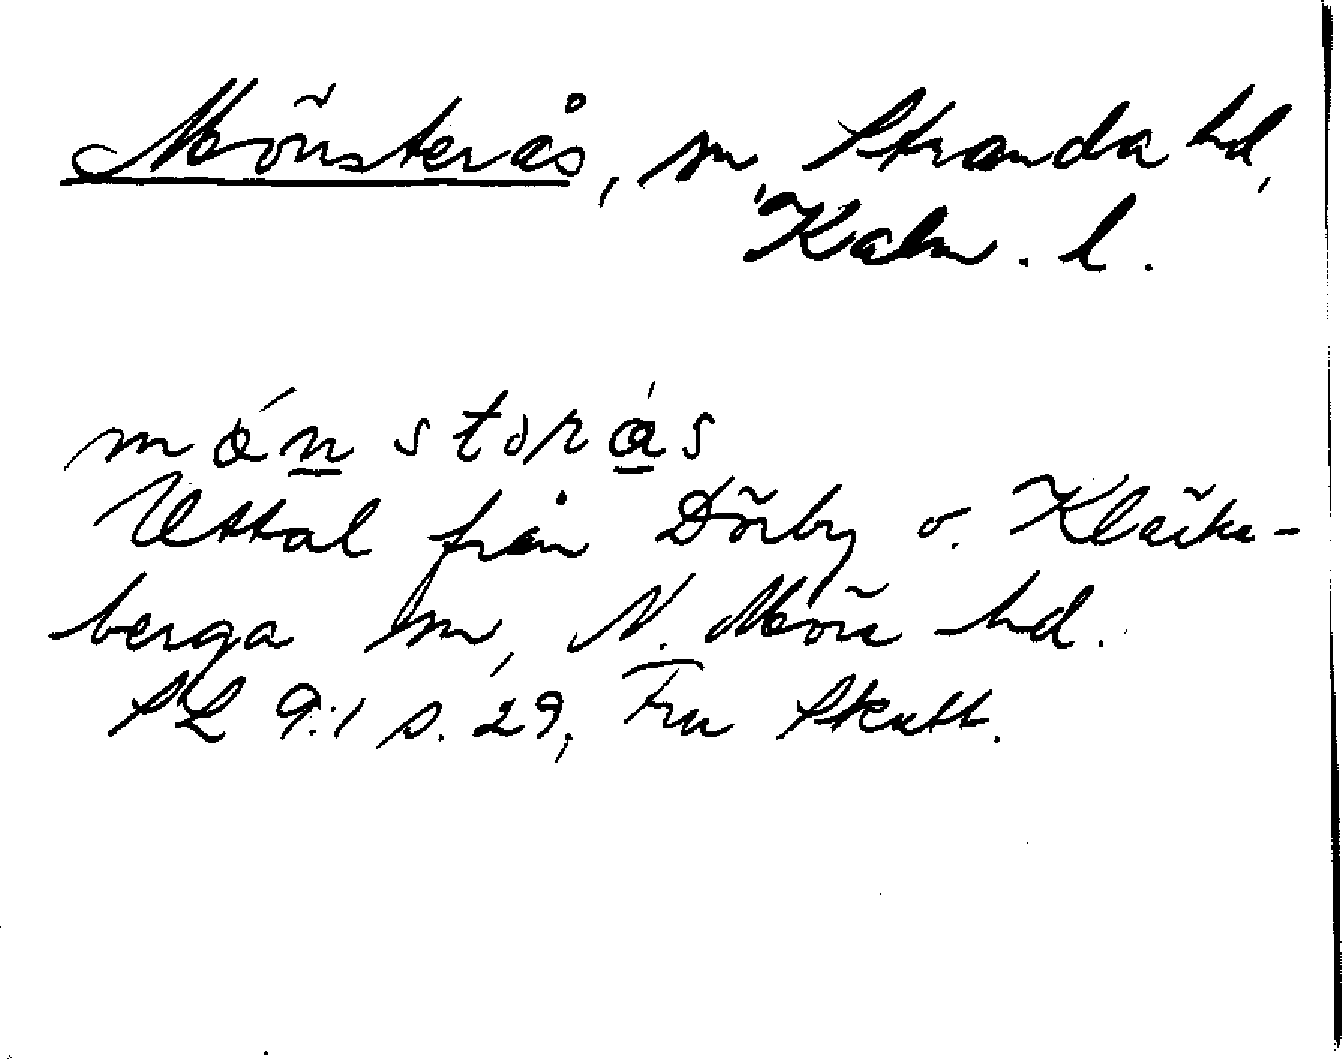 Mönsterås, sn, Stranda hd,
Kalm. l.
mónstərás
Uttal från Dörby o. Kläcke-
berga sn, N. Möre hd.
SL 9:1 s. 29, Fru Skutt.